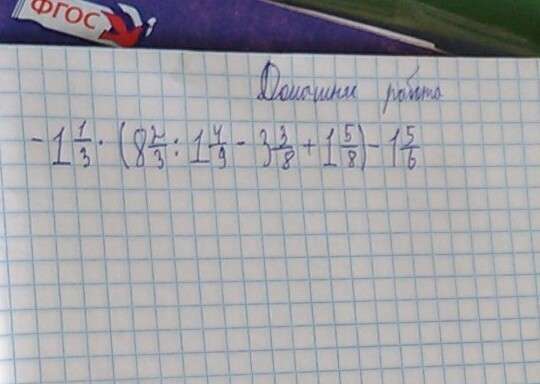 ФГОС
Домашняя работа
- 1 1/3 · (8 2/3 : 1 4/9 - 3 3/8 + 1 5/8) - 1 5/6